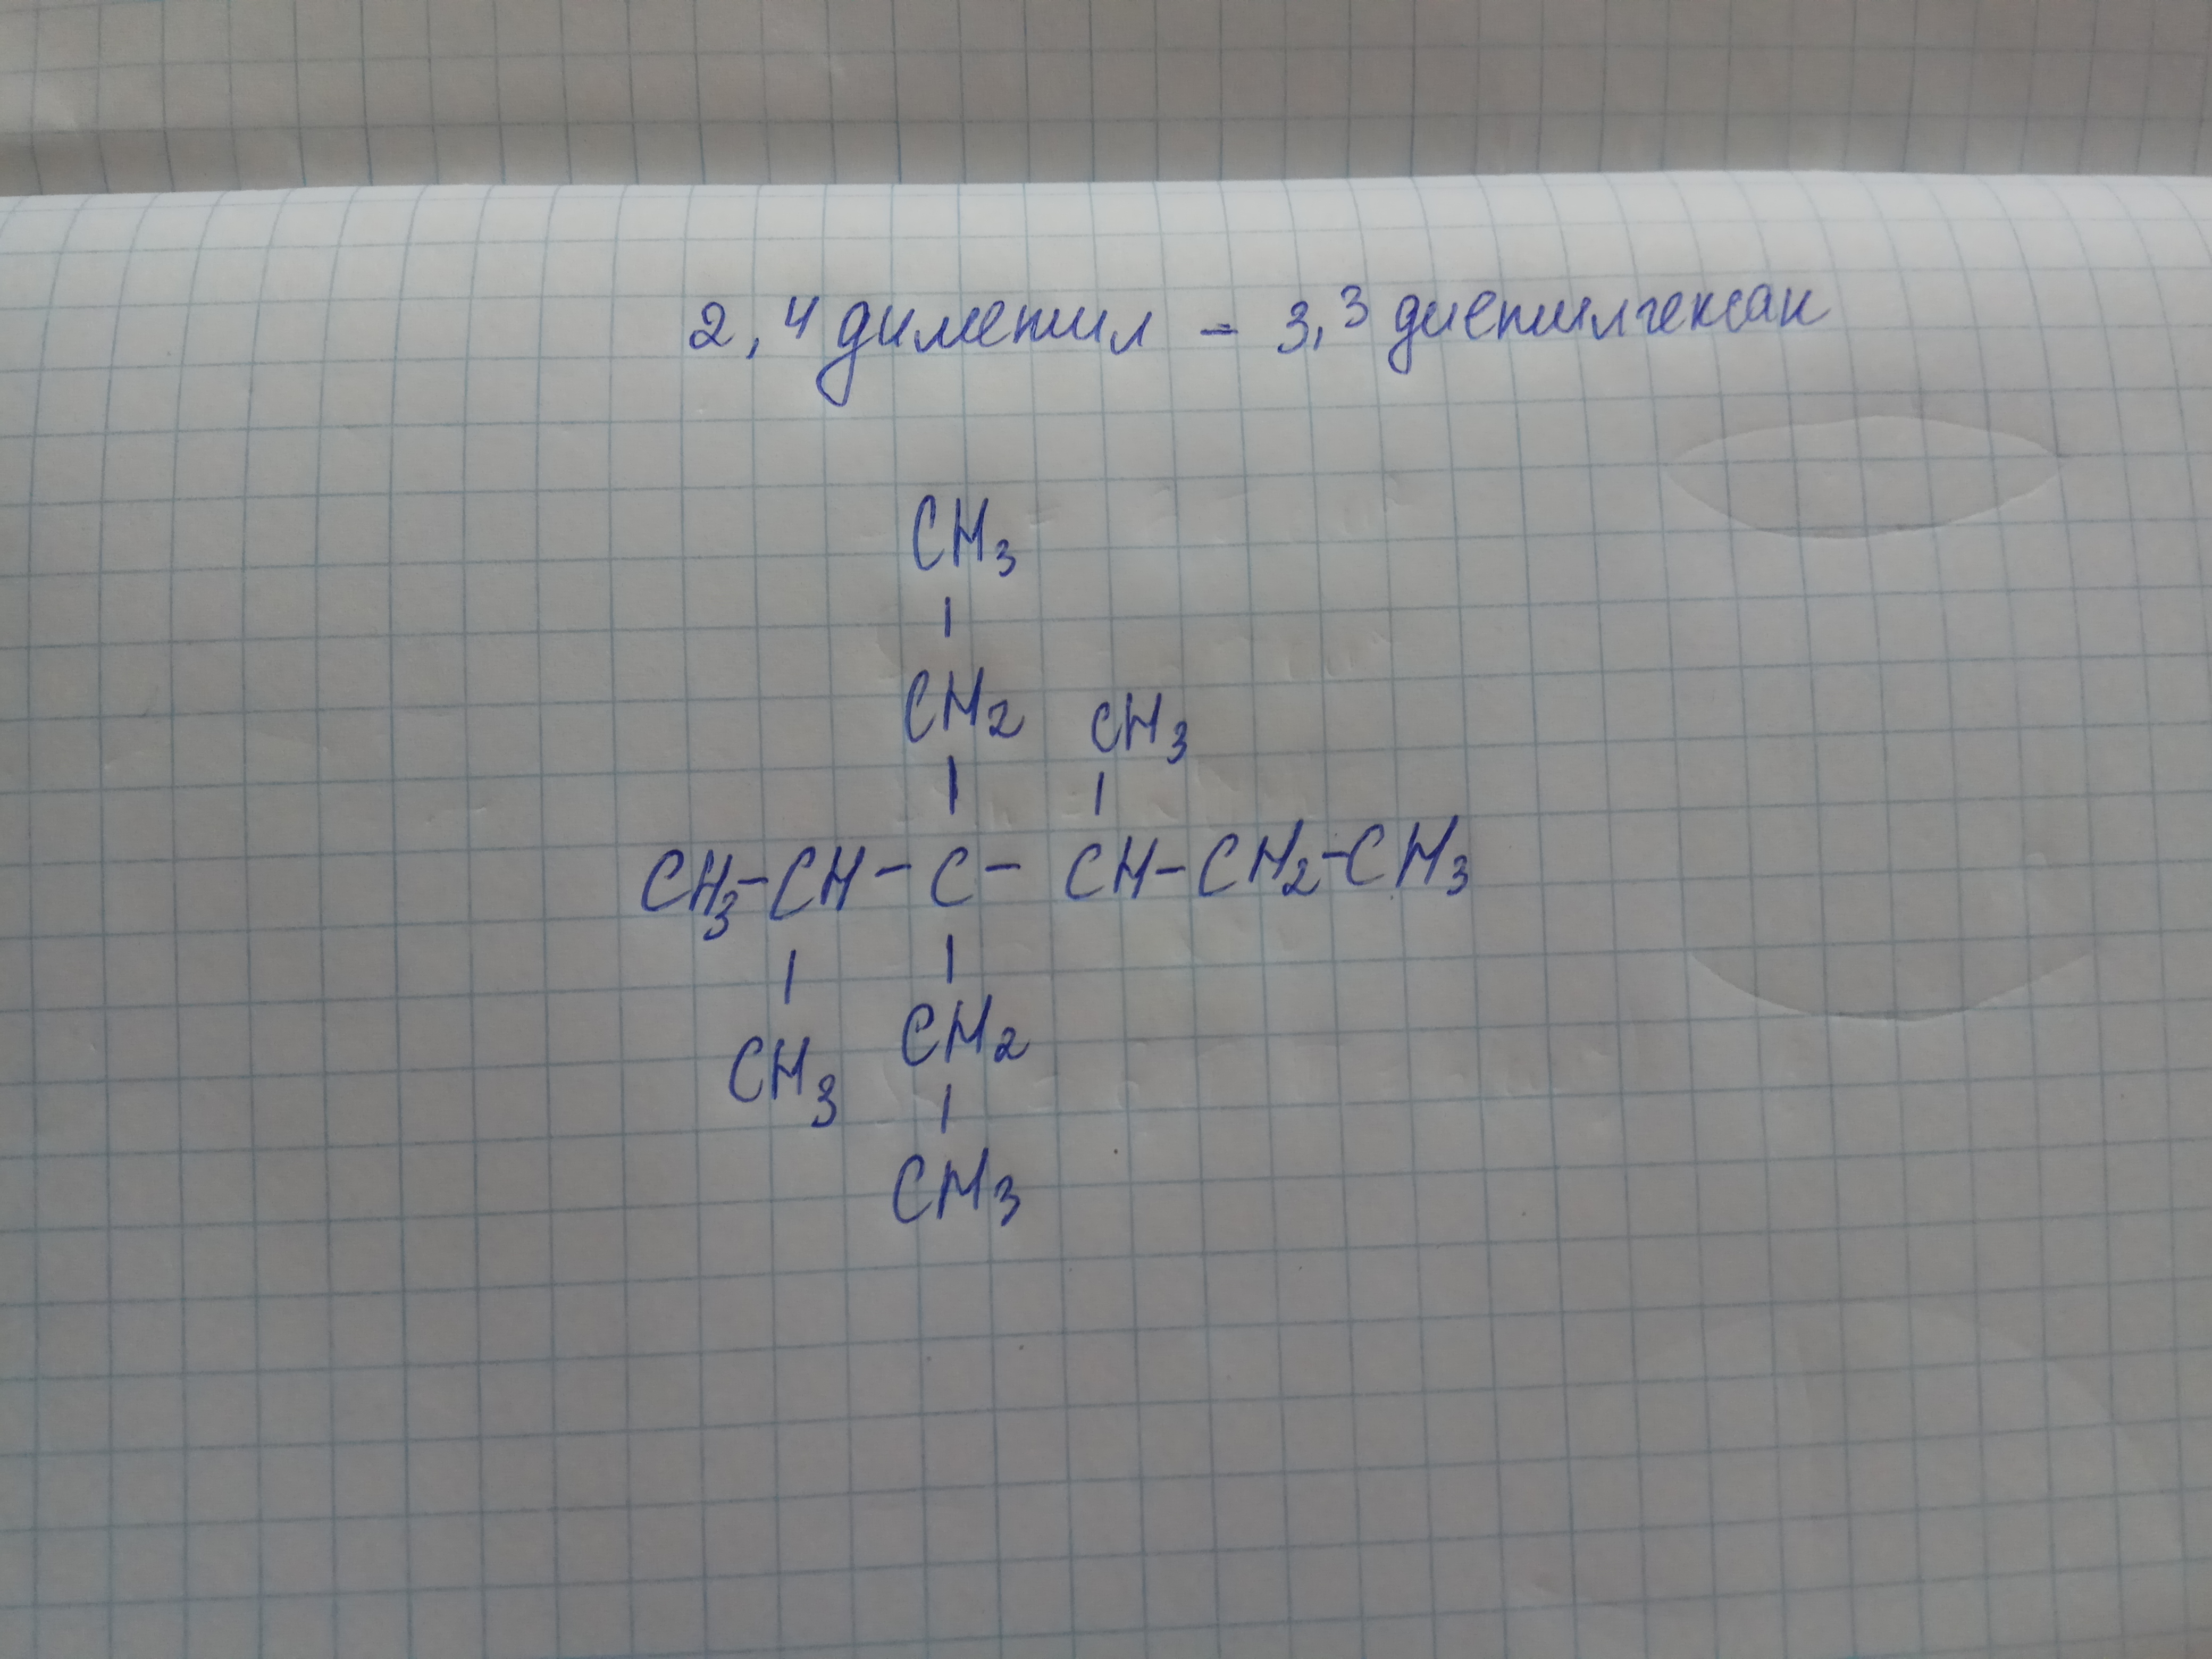 2,4 диметил - 3,3 диетилгексан
CH3
CH2 CH3
CH3-CH-C-CH-CH2-CH3
CH3 CH2
CH3